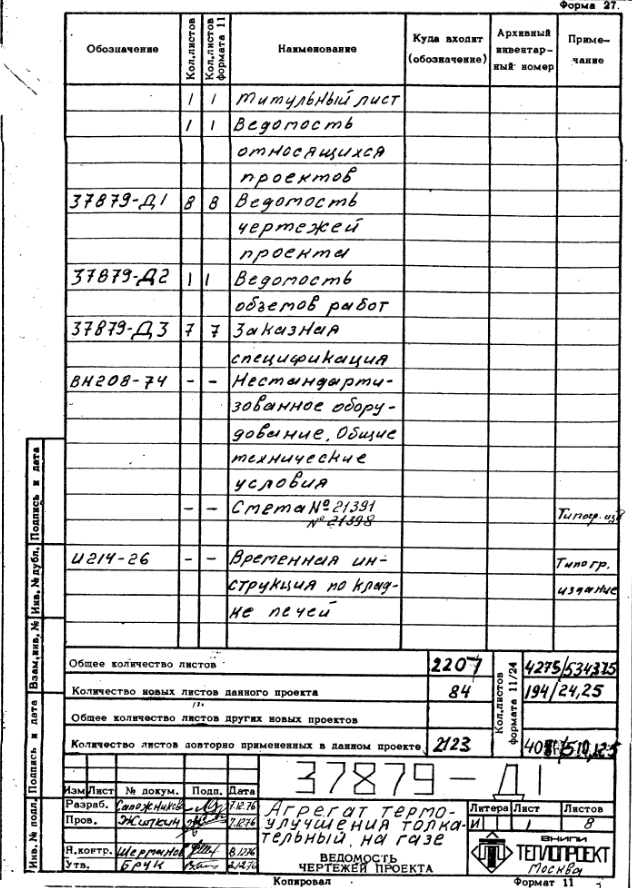 Форма 27.
Обозначение Кол.листов Кол.листов формата 11 Наименование Куда входит (обозначение) Архивный инвентарный номер Примечание
1 1 Титульный лист
1 1 Ведомость
относящихся
проектов
37879-Д1 8 8 Ведомость
чертежей
проекта
37879-Д2 1 1 Ведомость
объемов работ
37879-Д3 7 7 Заказная
спецификация
ВН208-74 - - Нестандарти-
зованное обору-
дование. Общие
технические
условия
- - Смета №21391
№21398
Типогр. изд
И214-26 - - Временная ин- Типогр.
струкция по клад- издание
не печей
Общее количество листов 2207
Количество новых листов данного проекта 84
Общее количество листов других новых проектов
Количество листов повторно примененных в данном проекте 2123
Кол.листов формата 11/24
194/24,25
Инв. № подл. Подпись и дата Взам.инв. № Инв. № дубл. Подпись и дата
37879-Д1
Изм Лист № докум. Подп. Дата
Разраб. Сапожников 7.12.76
Пров. Житкин 7.12.76
Н.контр. Шерманов 8.12.76
Утв. Брук
Агрегат термо-
улучшения толка-
тельный, на газе
ВЕДОМОСТЬ
ЧЕРТЕЖЕЙ ПРОЕКТА
Литера Лист Листов
И 1 8
ВНИПИ
ТЕПЛОПРОЕКТ
Москва
Копировал Формат 11